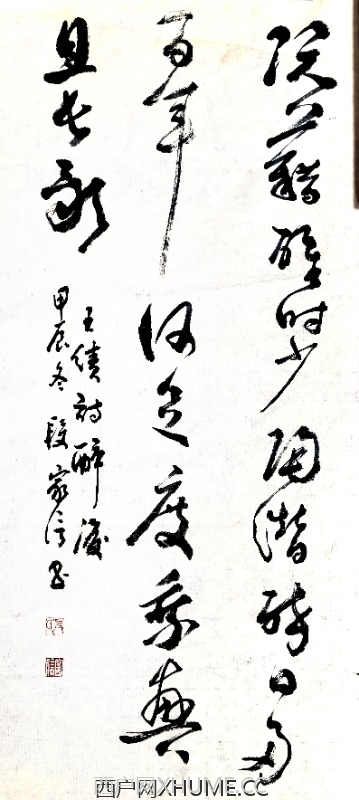 阮籍醒时少陶潜醉日多
百年何足度乘興
且长歌
王績詩醉後
甲辰冬段家信书
西户网XHUME.CC